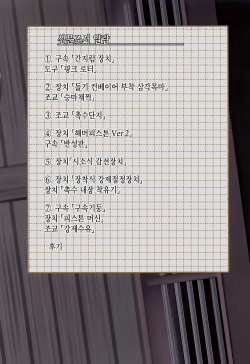 ① 구속 「간지럼 장치」
도구 「핑크 로터」
② 장치 「돌기 컨베이어 부착 삼각목마」
조교 「승마채찍」
③ 조교 「촉수단지」
④ 장치 「해머피스톤 Ver.2」
구속 「박성관」
⑤ 장치 「시소식 감전장치」
⑥ 장치 「장착식 강제절정장치」
장치 「촉수 내장 착유기」
⑦ 구속 「구속기둥」
장치 「피스톤 머신」
조교 「강제수유」
후기